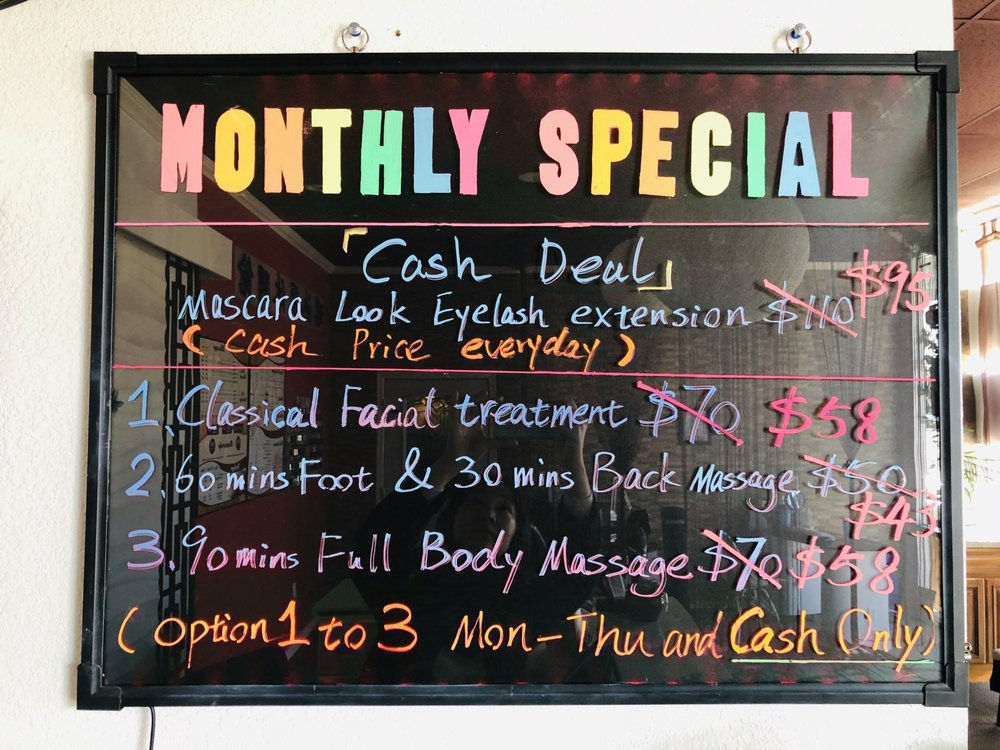 MONTHLY SPECIAL
「Cash Deal」
Mascara Look Eyelash extension $110 $95
(Cash Price everyday)
1. Classical Facial treatment $70 $58
2. 60 mins Foot & 30 mins Back Massage $50 $43
3. 90 mins Full Body Massage $70 $58
(Option 1 to 3 Mon-Thu and Cash Only)